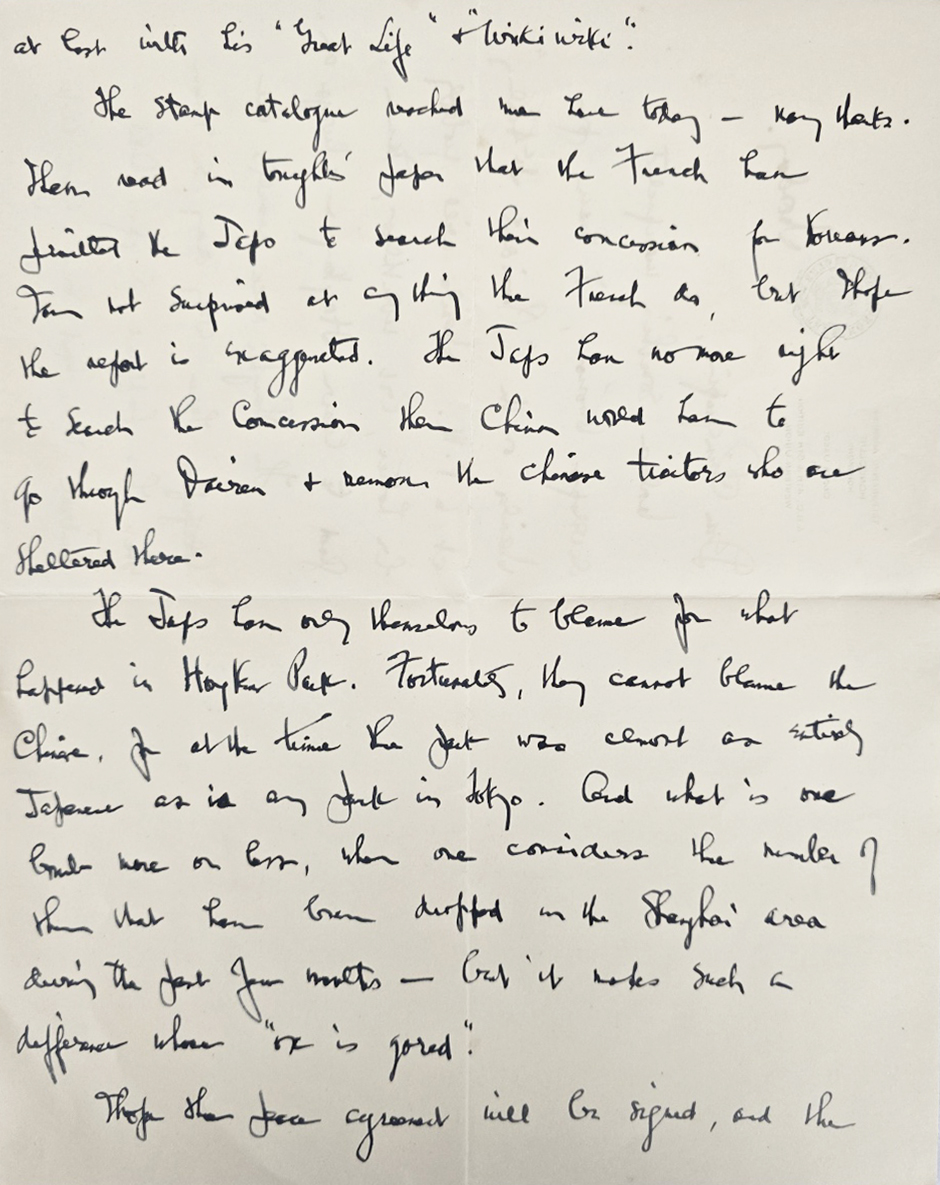 at last with his "Great Life" & "Wikiwiki".
The stamp catalogue reached me here today — many thanks.
I have read in tonight's paper that the French have
permitted the Japs to search their concession for Koreans.
I am not surprised at anything the French do, but I hope
the report is exaggerated. The Japs have no more right
to search the Concession than China would have to
go through Dairen & remove the Chinese traitors who are
sheltered there.
The Japs have only themselves to blame for what
happened in Hongkew Park. Fortunately, they cannot blame the
Chinese, for at the time the park was almost as entirely
Japanese as is any park in Tokyo. And what is one
bomb more or less, when one considers the number of
them that have been dropped in the Shanghai area
during the past few months — but it makes such a
difference whose "ox is gored".
I hope the peace agreement will be signed, and the